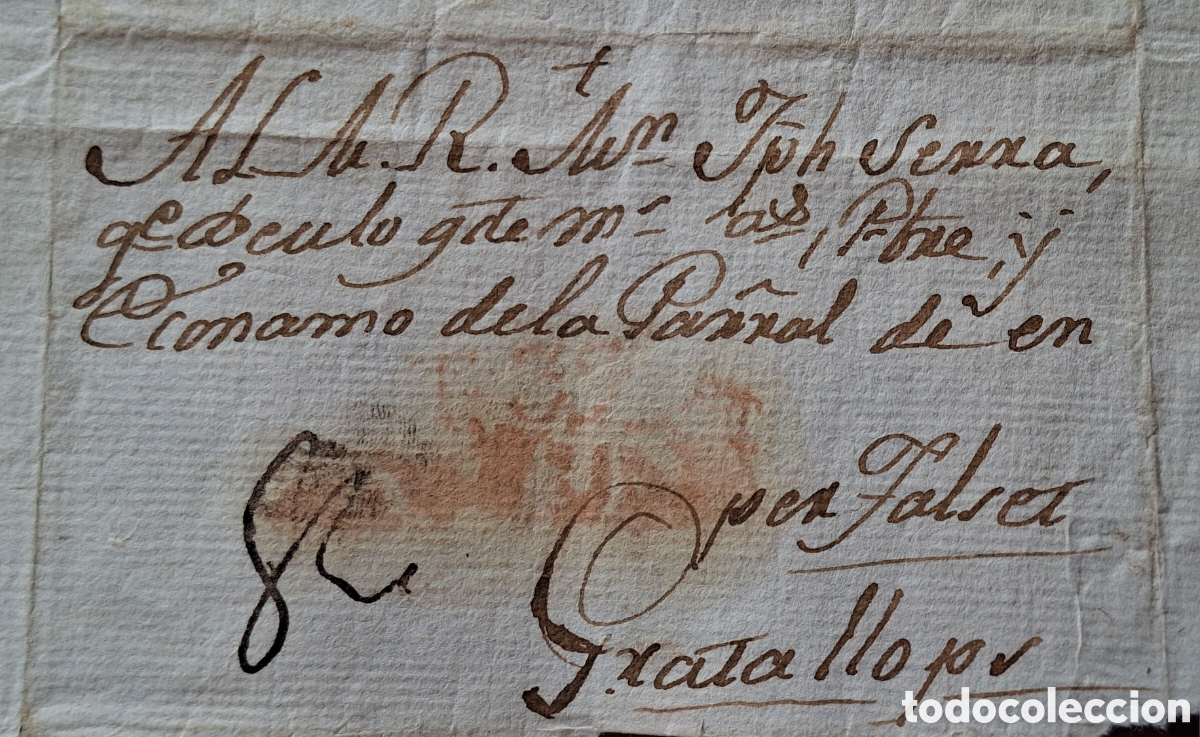 +
Al M. R. Mn Jph Serra,
qe Ds culo gde ms as, Pbre, y
Económo de la Parral de en
per Falset
Gratallops
todocoleccion